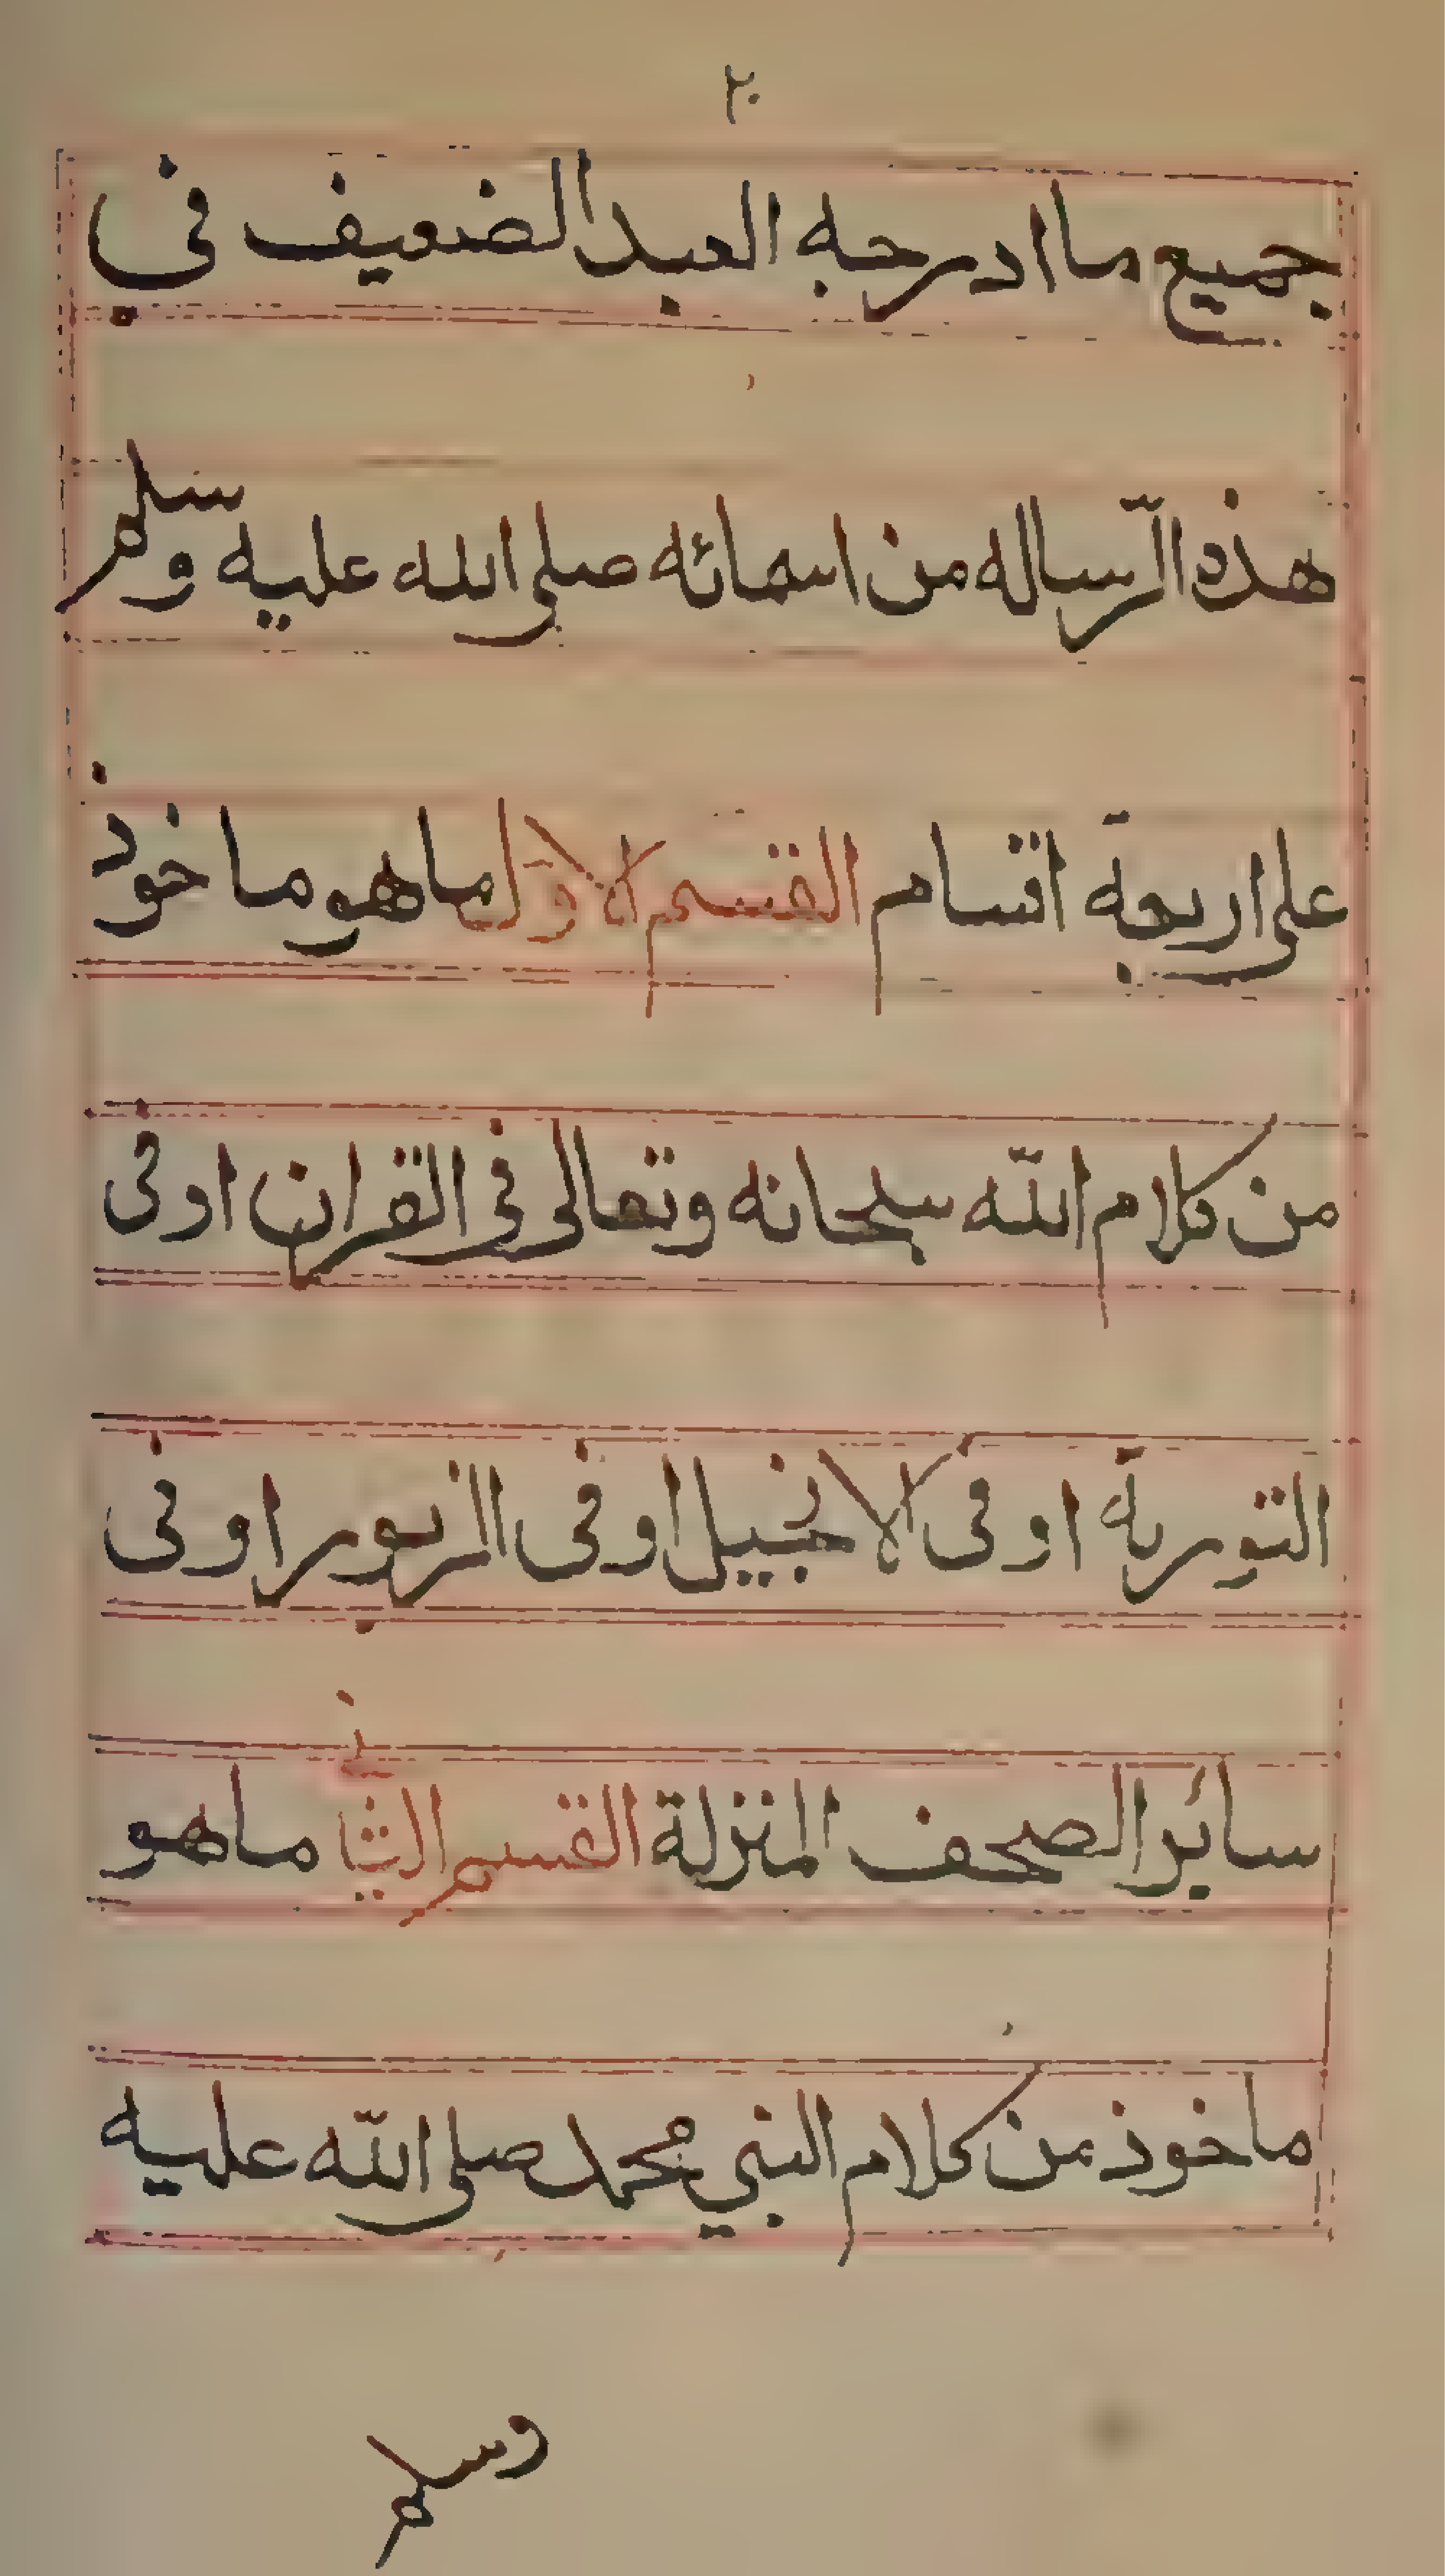 ٢٠
جميع ما ادرجه العبد الضعيف في
هذه الرّساله من اسمائه صلى الله عليه وسلم
على اربعة اقسام القسم الاوّل ما هو ماخوذ
من كلام اللّه سبحانه وتعالى فى القران او فى
التورية او فى الانجيل او فى الزبور او فى
سائير الصحف المنزلة القسم الثاني ما هو
ماخوذ من كلام النبي محمد صلى اللّه عليه
وسلم